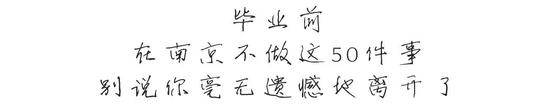 毕业前
在南京不做这50件事
别说你毫无遗憾地离开了